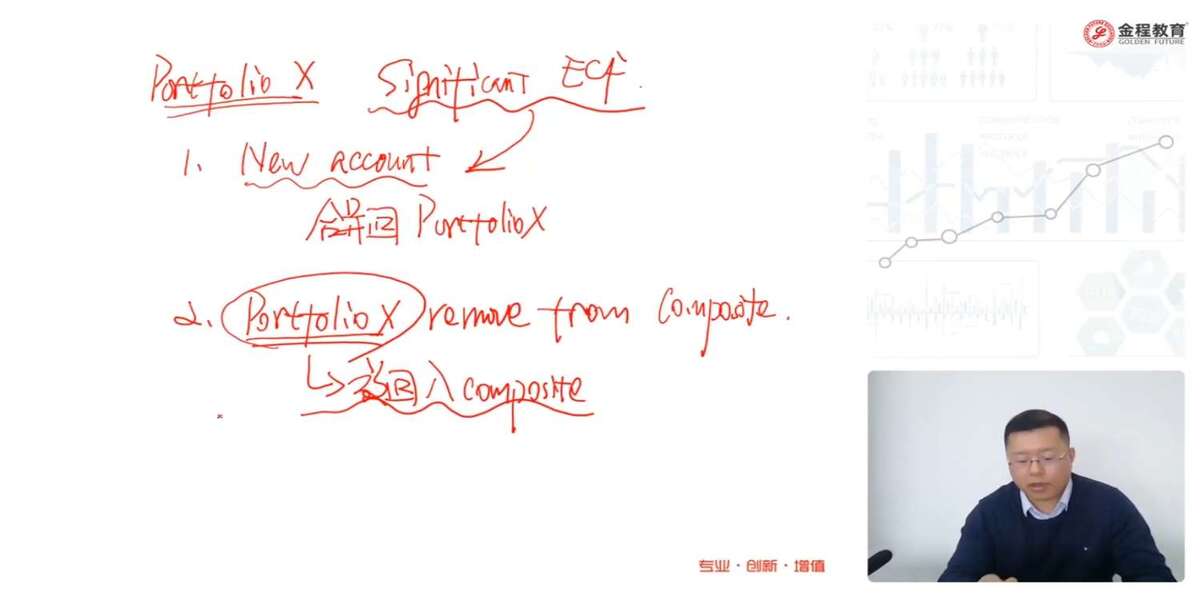 金程教育
GOLDEN FUTURE
Portfolio X Significant ECF.
1. New account
合并回 Portfolio X
2. Portfolio X remove from Composite.
放回入 composite
专业·创新·增值